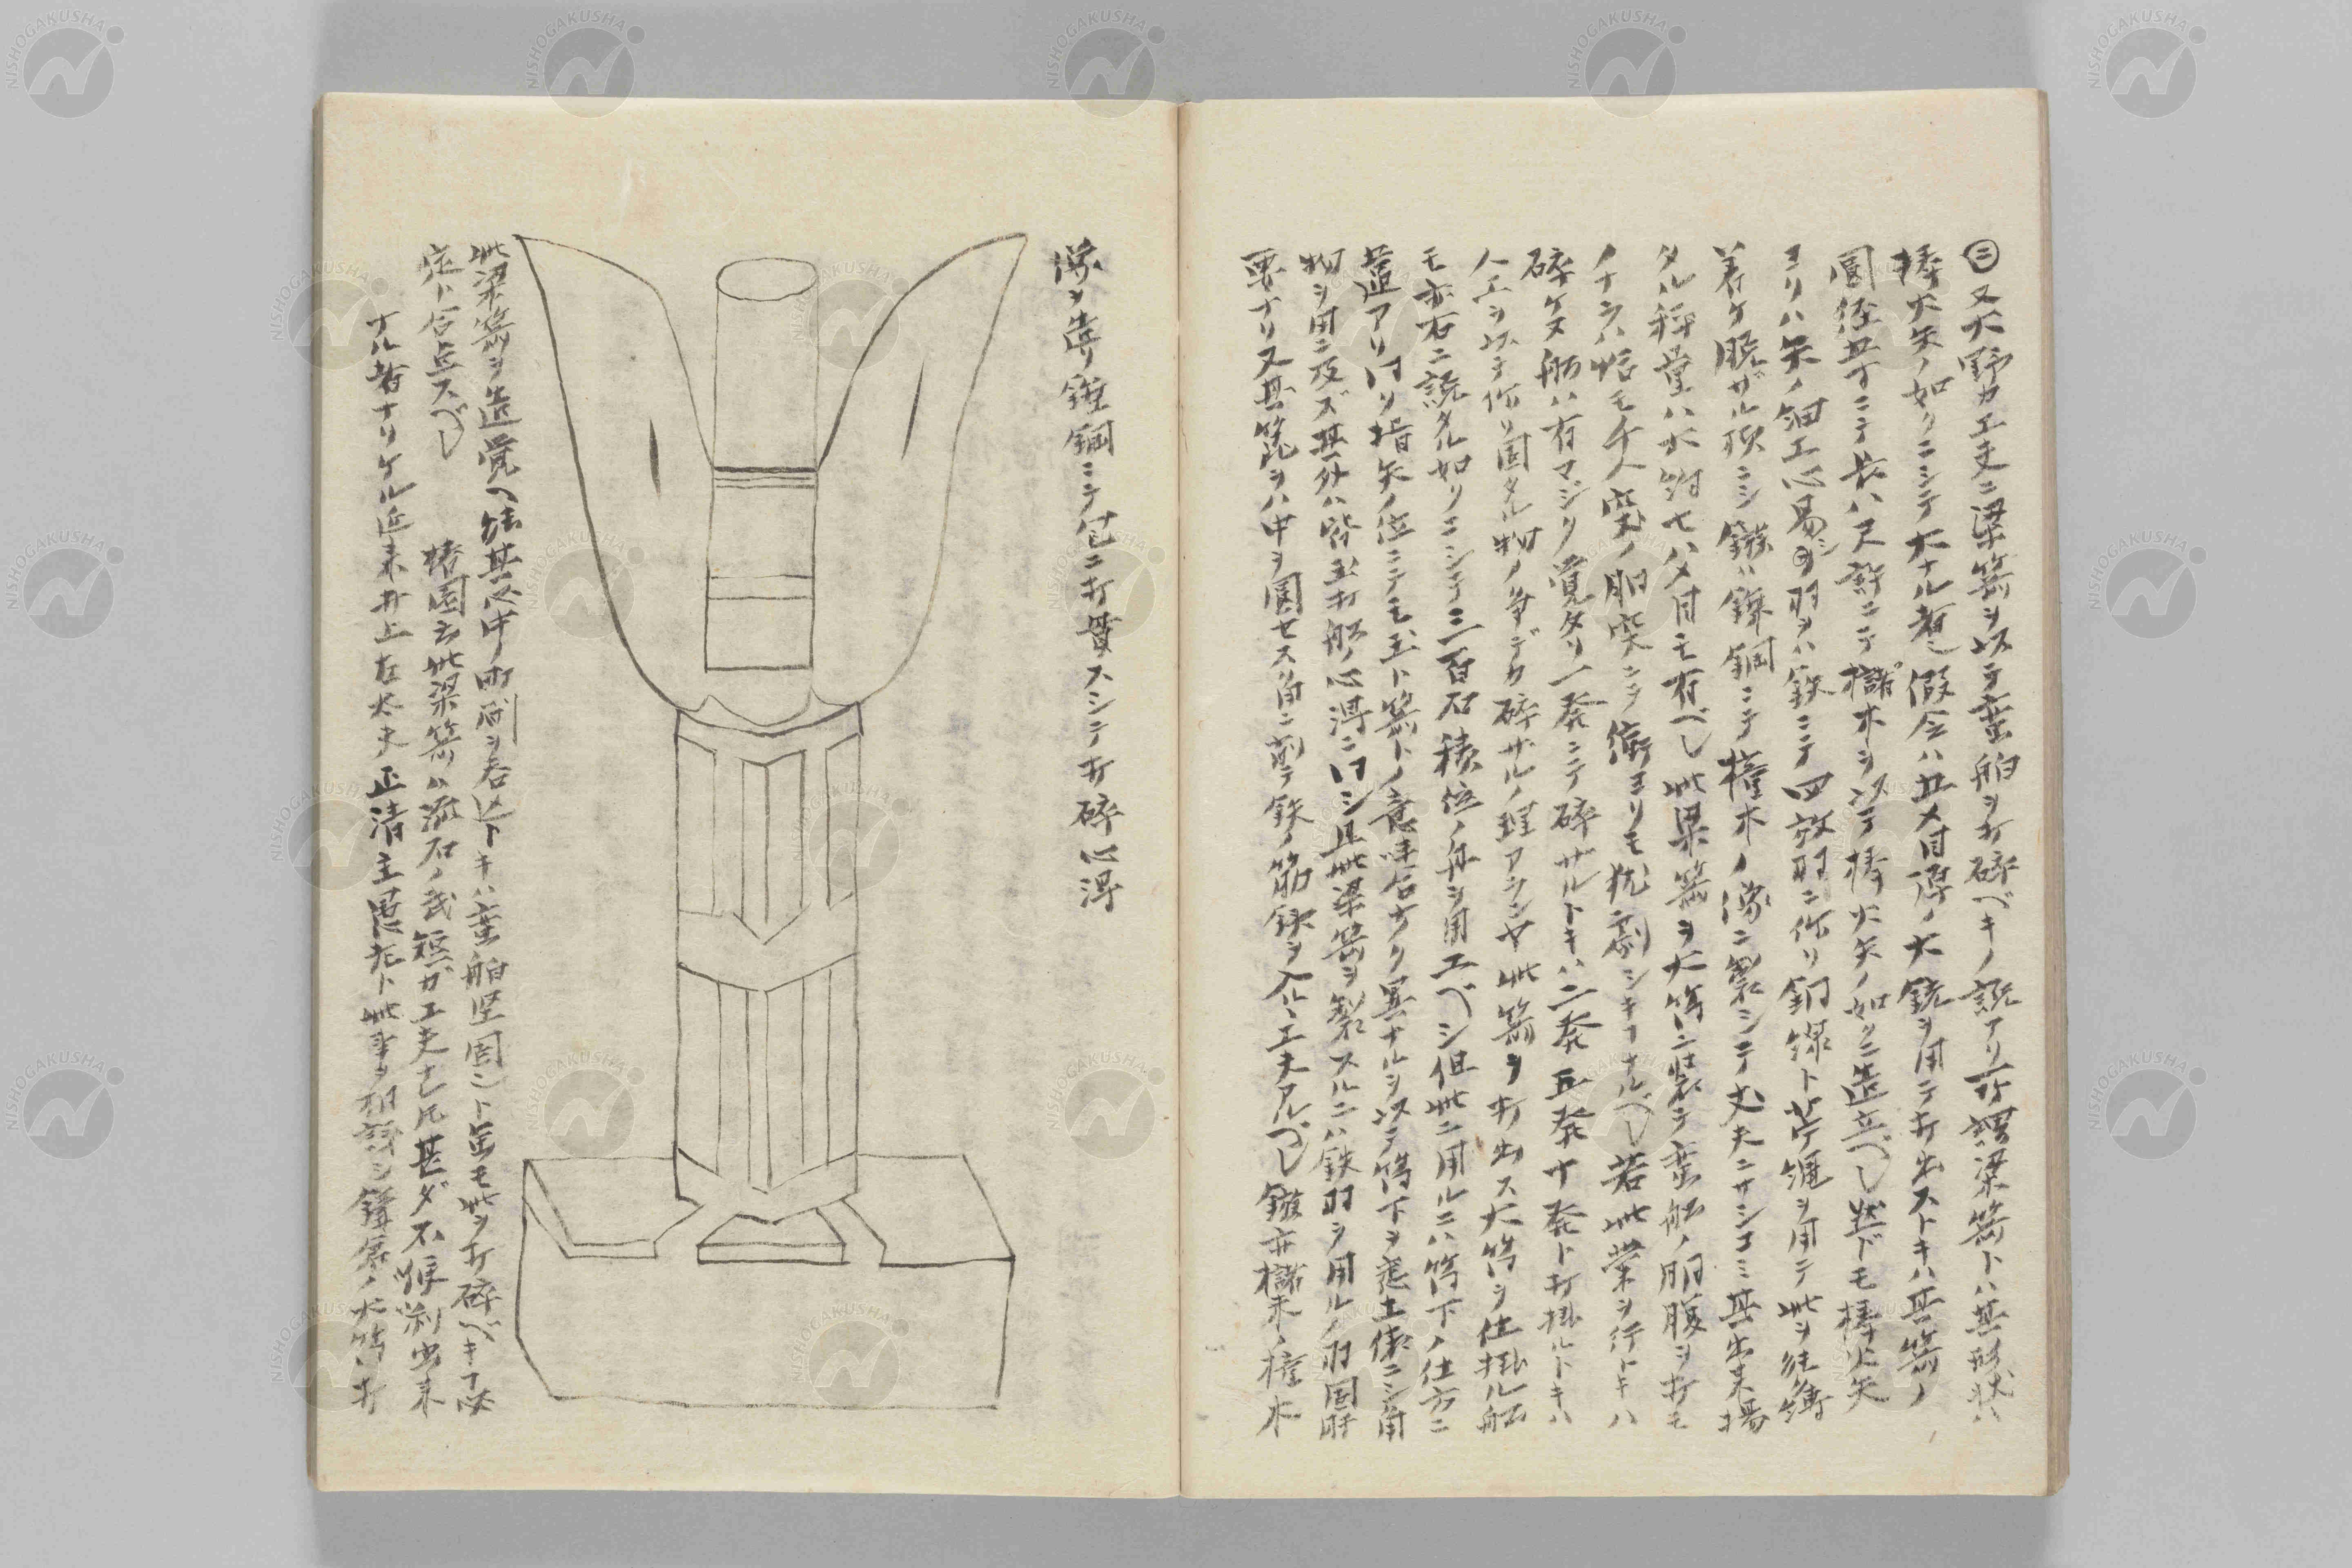 ㊂又大野カ工夫ニ梁箭ヲ以テ蛮舶ヲ打碎ベキノ説アリ所謂梁箭トハ其形状ハ
棒火矢ノ如クニシテ大ナル者也假令ハ五メ目厚ノ大銃ヲ用テ打出ストキハ其箭ノ
圓径五寸ニテ長ハ尺許ニテ櫧木ヲ以テ棒火矢ノ如クニ造立ベシ然ドモ棒火矢
ヨリハ矢ノ細工心易シ羽ヲハ鉄ニテ四放羽ニ作リ銅線ト苧縄ヲ用テ此ヲ纏縛
着ケ脱ザル様ニシ鏃ハ錬鋼ニテ橦木ノ像ニ製シテ丈夫ニサシコミ其出来揚
タル秤量ハ大約七八メ目モ有ベシ此梁箭ヲ大筒ニ装テ蛮舩ノ胴腹ヲ打モ
ノナラハ恰モ千人突ノ胴突ニテ衝ヨリモ猶劇シキコナルベシ若此業ヲ行トキハ
碎ケヌ舶ハ有マジク覚タリ一発ニテ碎ザルトキハ二発五発十発ト打掛ルトキハ
人工ヲ以テ作リ固タル物ノ争デカ碎ザルノ理アランヤ此箭ヲ打出ス大筒ヲ仕掛ル舩
モ亦右ニ説タル如クニシテ三百石積位ノ舟ヲ用エベシ但此ニ用ルニハ筒下ノ仕方ニ
差アリ指矢ノ位ニテモ玉ト箭トノ意味合ナク異ナルヲ以テ筒下ヲ土俵ニシ角
物ヲ用ニ及ズ其外ハ皆玉打舩ノ心得ニ同シ且此梁箭ヲ製スルニハ鉄羽ヲ用ル羽固肝
要ナリ又其箆ヲハ中ヲ圓セス角ニ削テ鉄ノ筋鉄ヲ入ル工夫アルベシ鏃亦櫧木ノ橦木
像ヲ造リ錬鋼ニテ包ニ打貫スシテ打碎心得
此梁箭ヲ造覚ヘ法其心中ノ町間ヲ呑込トキハ蛮舶堅固ント虽モ此ヲ打碎ベキコ必
定ト合点スベシ
椿園云此梁箭ハ流石ノ武短ガ工夫ナレ𪜈甚ダ不便利出来
ナル者ナリケル近来井上左大夫正清主愚老ト此事ヲ相談シ鎌倉ノ大筒打